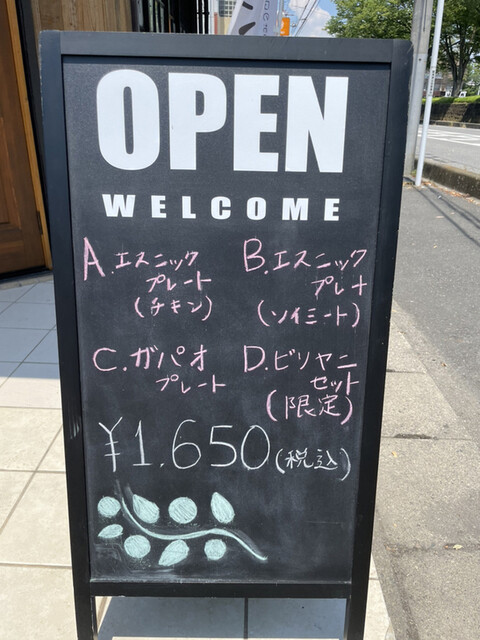 OPEN
WELCOME
A.エスニック
プレート
(チキン)
B.エスニック
プレート
(ソイミート)
C.ガパオ
プレート
D.ビリヤニ
セット
(限定)
¥1.650(税込)